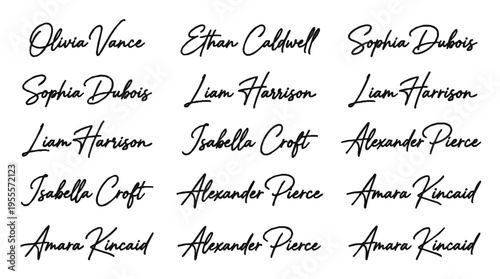 Olivia Vance Ethan Caldwell Sophia Dubois
Sophia Dubois Liam Harrison Liam Harrison
Liam Harrison Isabella Croft Alexander Pierce
Isabella Croft Alexander Pierce Amara Kincaid
Amara Kincaid Alexander Pierce Amara Kincaid
Adobe Stock | #1955572123